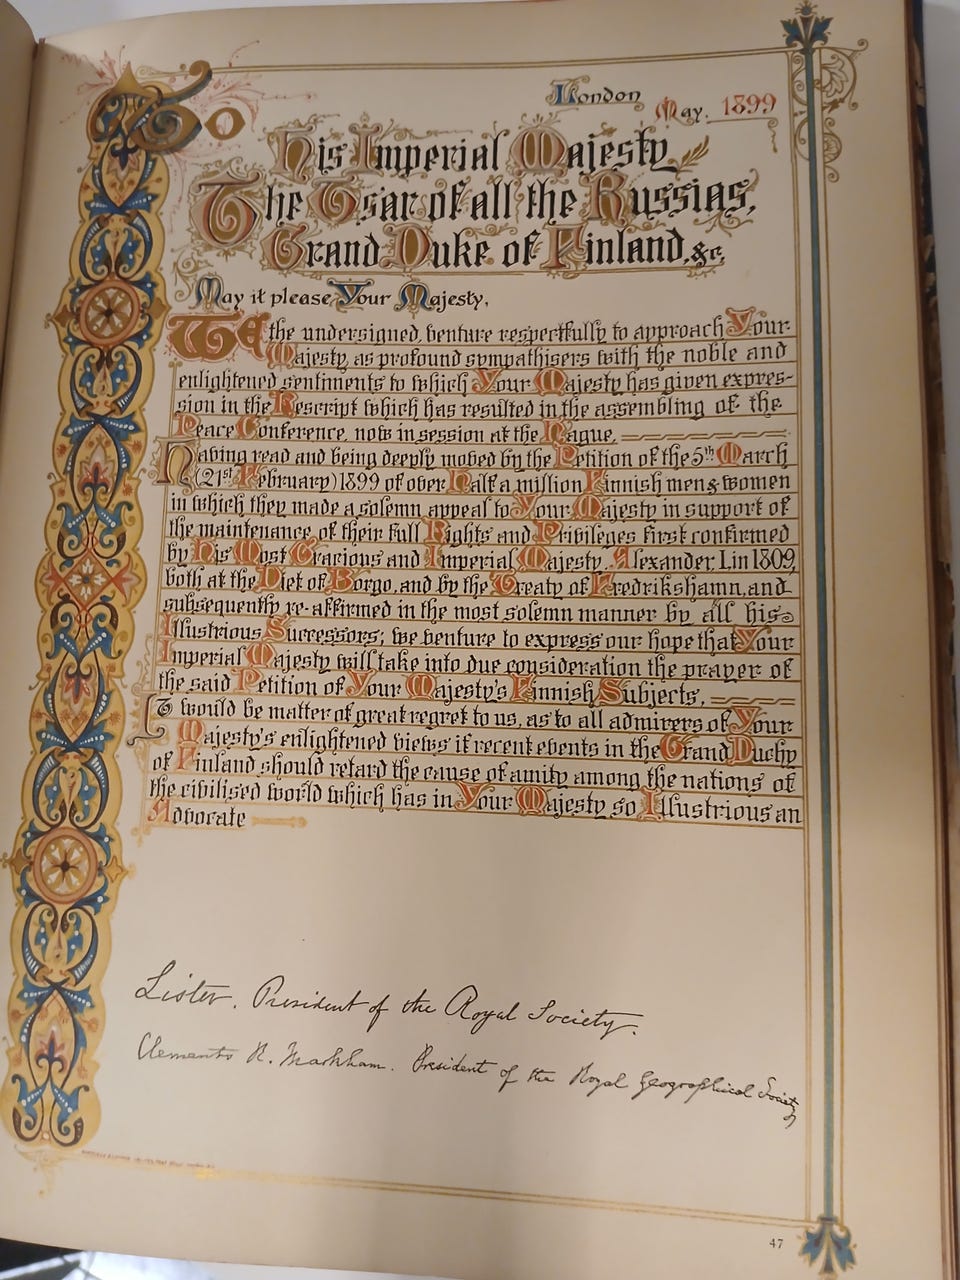 London
May. 1899
To
His Imperial Majesty
The Tsar of all the Russias,
Grand Duke of Finland, &c,
May it please Your Majesty,
We the undersigned, venture respectfully to approach Your
Majesty, as profound sympathisers with the noble and
enlightened sentiments to which Your Majesty has given expres-
sion in the Rescript which has resulted in the assembling of the
Peace Conference, now in session at the Hague,
Having read and being deeply moved by the Petition of the 5th March
(21st February) 1899 of over Half a million Finnish men & women
in which they made a solemn appeal to Your Majesty in support of
the maintenance of their full Rights and Privileges first confirmed
by His Most Gracious and Imperial Majesty Alexander I. in 1809,
both at the Diet of Borgo, and by the Treaty of Fredrikshamn, and
subsequently re-affirmed in the most solemn manner by all his
Illustrious Successors; we venture to express our hope that Your
Imperial Majesty will take into due consideration the prayer of
the said Petition of Your Majesty's Finnish Subjects,
It would be matter of great regret to us, as to all admirers of Your
Majesty's enlightened views if recent events in the Grand Duchy
of Finland should retard the cause of amity among the nations of
the civilised world which has in Your Majesty so Illustrious an
Advocate
Lister. President of the Royal Society.
Clements R. Markham. President of the Royal Geographical Society
47